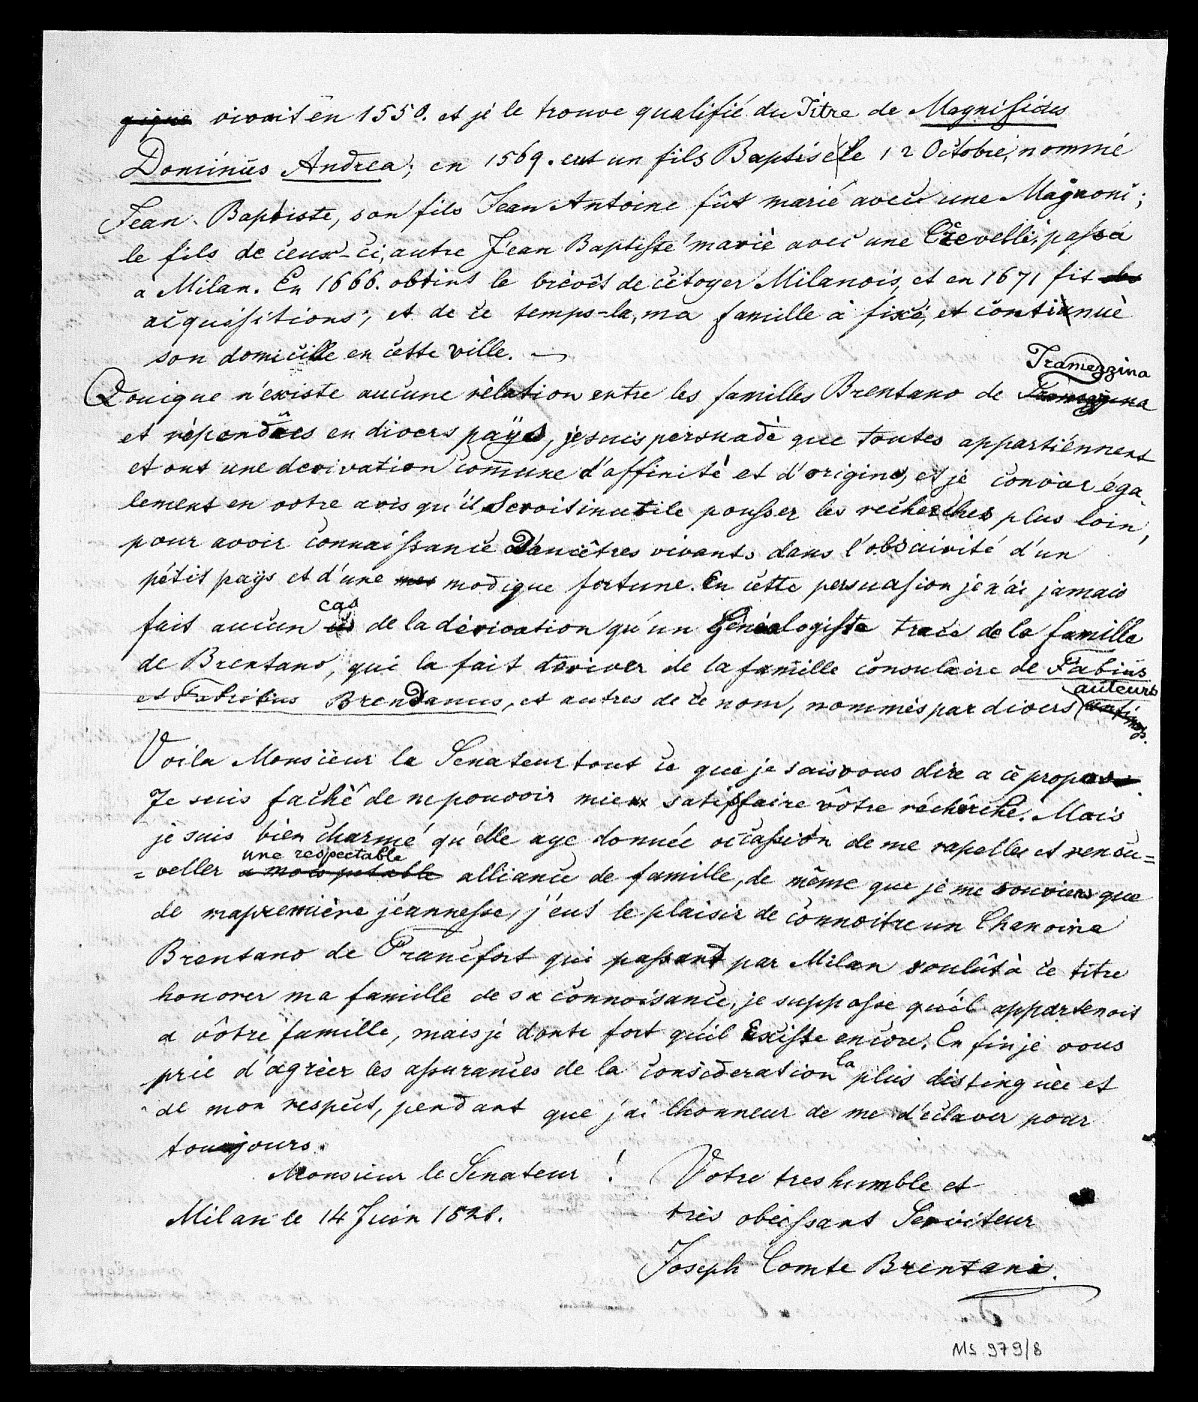 gique vivoit en 1550. et je le trouve qualifié du Titre de Magnificus
Dominus Andrea; en 1569. eut un fils Baptisé le 12 Octobre, nommé
Jean-Baptiste, son fils Jean Antoine fût marié avec une Magnoni;
le fils de ceux-ci, autre Jean Baptiste marié avec une Crevelli, passa
a Milan. En 1666. obtins le brévêt de citoyer Milanois, et en 1671 fit des
acquisitions; et de ce temps-la, ma famille à fixé, et continué
son domicille en cette ville. —
Tramezzina
Quoique n'existe aucune rèlation entre les familles Brentano de Tramezzina
et rèpendûes en divers paÿs, je suis pérsuadé que toutes appartiénnent
et ont une derivation commune d'affinité et d'origine, et je convir éga
lement en votre avis qu'il seroit inutile pousser les recherches plus loin,
pour avoir connaissance D'ancêtres vivants dans l'obscurité d'un
pétit pays et d'une mes modique fortune. En cette persuasion je n'ai jamais
cas
fait aucun de la dérivation qu'un Généalogiste trace de la famille
de Brentano, qui la fait dériver de la famille consulaire de Fabius
auteurs
et Fabritius Brendanus, et autres de ce nom, nommés par divers
Voila Monsieur le Senateur tout ce que je sais vous dire a ce propos.
Je suis faché de ne pouvoir mieux satisfaire vôtre réchérche. Mais
je suis bien charmé qu'élle aye donnée occasion de me rapeller et renou=
une respectable
=veller alliance de famille, de même que je me souviens que
de ma première jéannesse, j'eus le plaisir de connoitre un Chanoine
Brentano de Francfort qui passant par Milan voulût à ce titre
honorer ma famille de sa connoisance, je supposse qu'il appartenoit
a vôtre famille, mais je doute fort qu'il Existe encore. En fin je vous
prie d'agréer les assurances de la consideration la plus distinguée et
de mon respect, pendant que j'ai l'honneur de me d'éclarer pour
toujours.
Monsieur le Senateur !
Votre tres humble et
Milan le 14 Juin 1828.
très obéissant Serviteur
Joseph Comte Brentani.
Ms 979/8